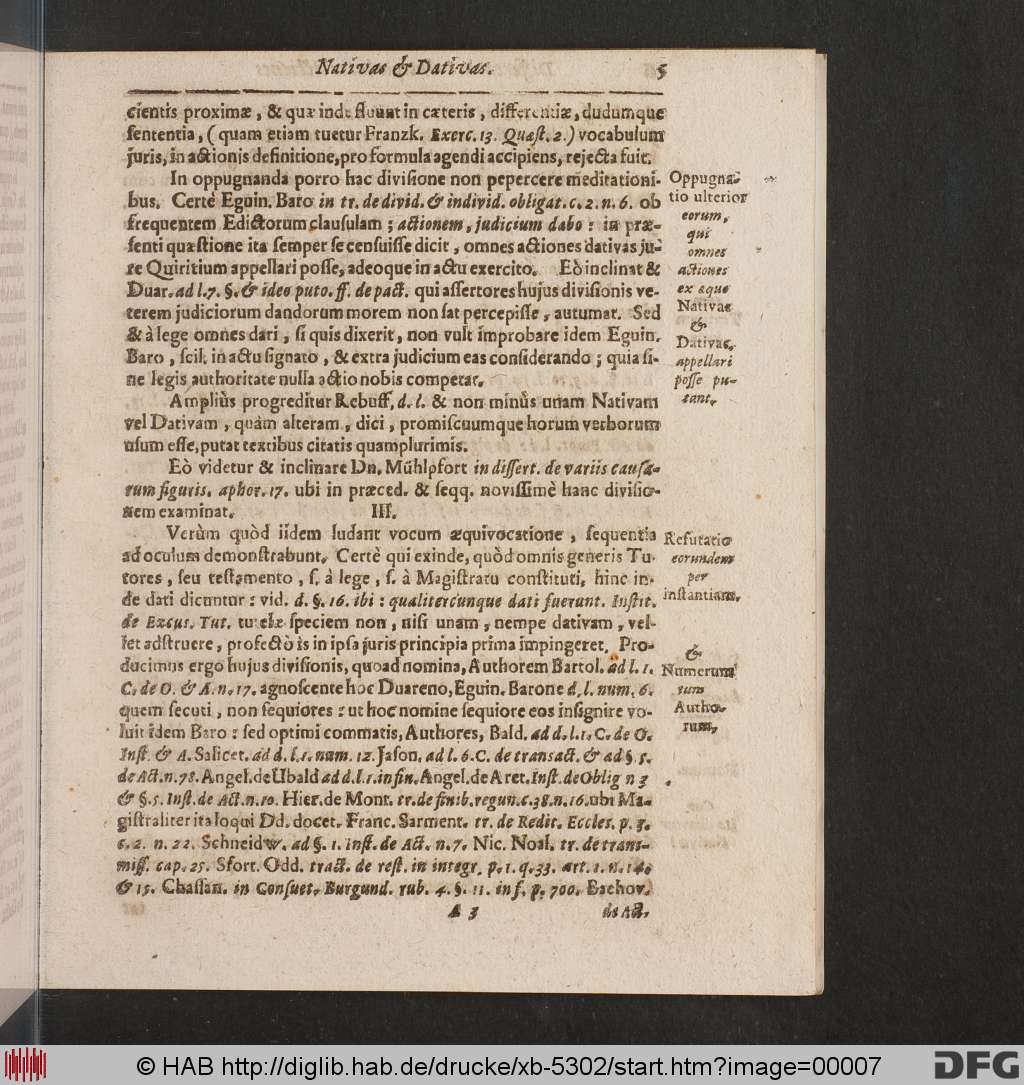 Nativas & Dativas. 5
cientis proximæ, & quæ inde fluunt in cæteris, differentiæ, dudumque
ſententia, (quam etiam tuetur Franzk. Exerc. 13. Quæſt. 2.) vocabulum
juris, in actionis definitione, pro formula agendi accipiens, rejecta fuit.
In oppugnanda porro hac diviſione non pepercere meditationi-
bus. Certè Eguin. Baro in tr. de divid. & individ. obligat. c. 2. n. 6. ob
frequentem Edictorum clauſulam; actionem, judicium dabo: in præ-
ſenti quæſtione ita ſemper ſe cenſuiſſe dicit, omnes actiones dativas ju-
re Quiritium appellari poſſe, adeoque in actu exercito. Eò inclinat &
Duar. ad l. 7. §. & ideo puto. ff. de pact. qui aſſertores hujus diviſionis ve-
terem judiciorum dandorum morem non ſat percepiſſe, autumat. Sed
& à lege omnes dari, ſi quis dixerit, non vult improbare idem Eguin.
Baro, ſcil. in actu ſignato, & extra judicium eas conſiderando; quia ſi-
ne legis authoritate nulla actio nobis competat.
Oppugna-
tio ulterior
eorum,
qui
omnes
actiones
ex æque
Nativas
&
Dativas,
appellari
poſſe pu-
tant.
Ampliùs progreditur Rebuff. d. l. & non minùs unam Nativam
vel Dativam, quàm alteram, dici, promiſcuumque horum verborum
uſum eſſe, putat textibus citatis quamplurimis.
Eò videtur & inclinare Dn. Mühlpfort in diſſert. de variis cauſa-
rum figuris. aphor. 17. ubi in præced. & ſeqq. noviſſimè hanc diviſio-
nem examinat. III.
Verùm quòd iidem ludant vocum æquivocatione, ſequentia
ad oculum demonſtrabunt. Certè qui exinde, quòd omnis generis Tu-
tores, ſeu teſtamento, ſ. à lege, ſ. à Magiſtratu conſtituti, hinc in-
de dati dicuntur: vid. d. §. 16. ibi: qualitercunque dati fuerunt. Inſtit.
de Excus. Tut. tutelæ ſpeciem non, niſi unam, nempe dativam, vel-
let adſtruere, profectò is in ipſa juris principia prima impingeret. Pro-
ducimus ergo hujus diviſionis, quoad nomina, Authorem Bartol. ad l. 1.
C. de O. & A. n. 17. agnoſcente hoc Duareno, Eguin. Barone d. l. num. 6.
quem ſecuti, non ſequiores: ut hoc nomine ſequiore eos inſignire vo-
luit idem Baro: ſed optimi commatis, Authores, Bald. ad d. l. 1. C. de O.
Inſt. & A. Salicet. ad d. l. 1. num. 12. Jaſon. ad l. 6. C. de transact. & ad §. 5.
de Act. n. 78. Angel. de Ubald ad d. l. 1. in fin. Angel. de Aret. Inſt. de Oblig n 3
& §. 5. Inſt. de Act. n. 10. Hier. de Mont. tr. de finib. regun. c. 38. n. 16. ubi Ma-
giſtraliter ita loqui Dd. docet. Franc. Sarment. tr. de Redit. Eccleſ. p. 3.
c. 2. n. 22. Schneidw. ad §. 1. Inſt. de Act. n. 7. Nic. Noal. tr. de trans-
miſſ. cap. 25. Sfort. Odd. tract. de reſt. in integr. p. 1. q. 33. art. 1. n. 14.
& 15. Chaſſan. in Conſuet. Burgund. rub. 4. §. 11. in f. p. 700. Bachov.
Refutatio
eorundem
per
inſtantiam,
&
Numerum
tum
Autho-
rum,
A 3 de Act.
© HAB http://diglib.hab.de/drucke/xb-5302/start.htm?image=00007
DFG